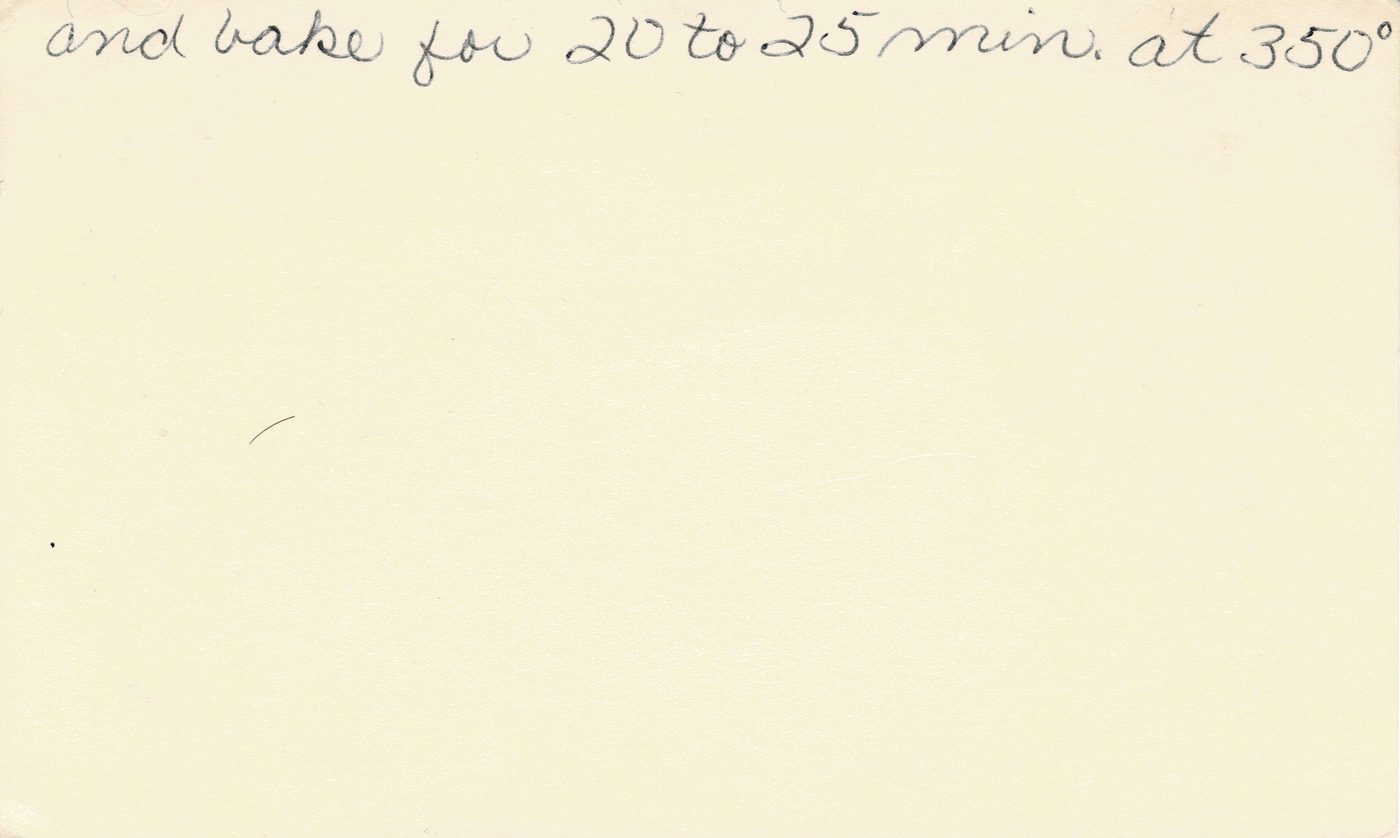 and bake for 20 to 25 min. at 350°